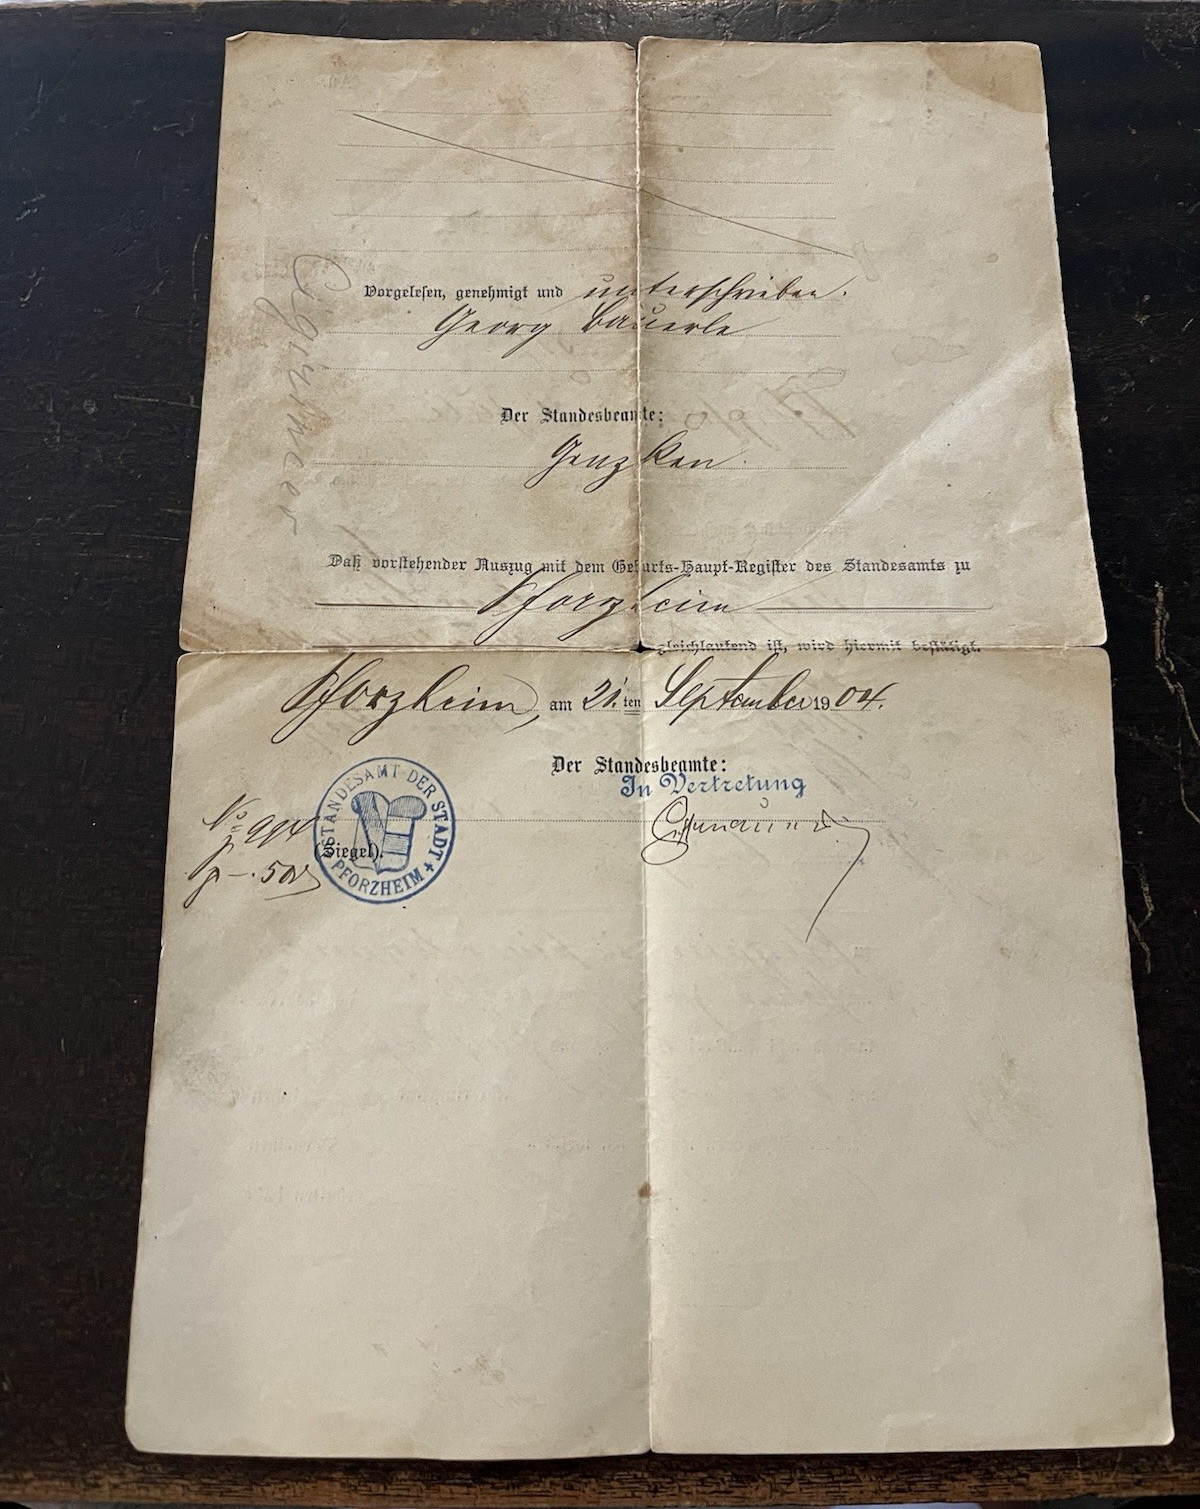 Vorgelesen, genehmigt und unterschrieben.
Georg Bäuerle
Der Standesbeamte:
Genzken.
Daß vorstehender Auszug mit dem Geburts-Haupt-Register des Standesamts zu
Pforzheim
gleichlautend ist, wird hiermit bestätigt.
Pforzheim, am 21.ten September 1904.
Der Standesbeamte:
In Vertretung
STANDESAMT DER STADT PFORZHEIM
(Siegel).